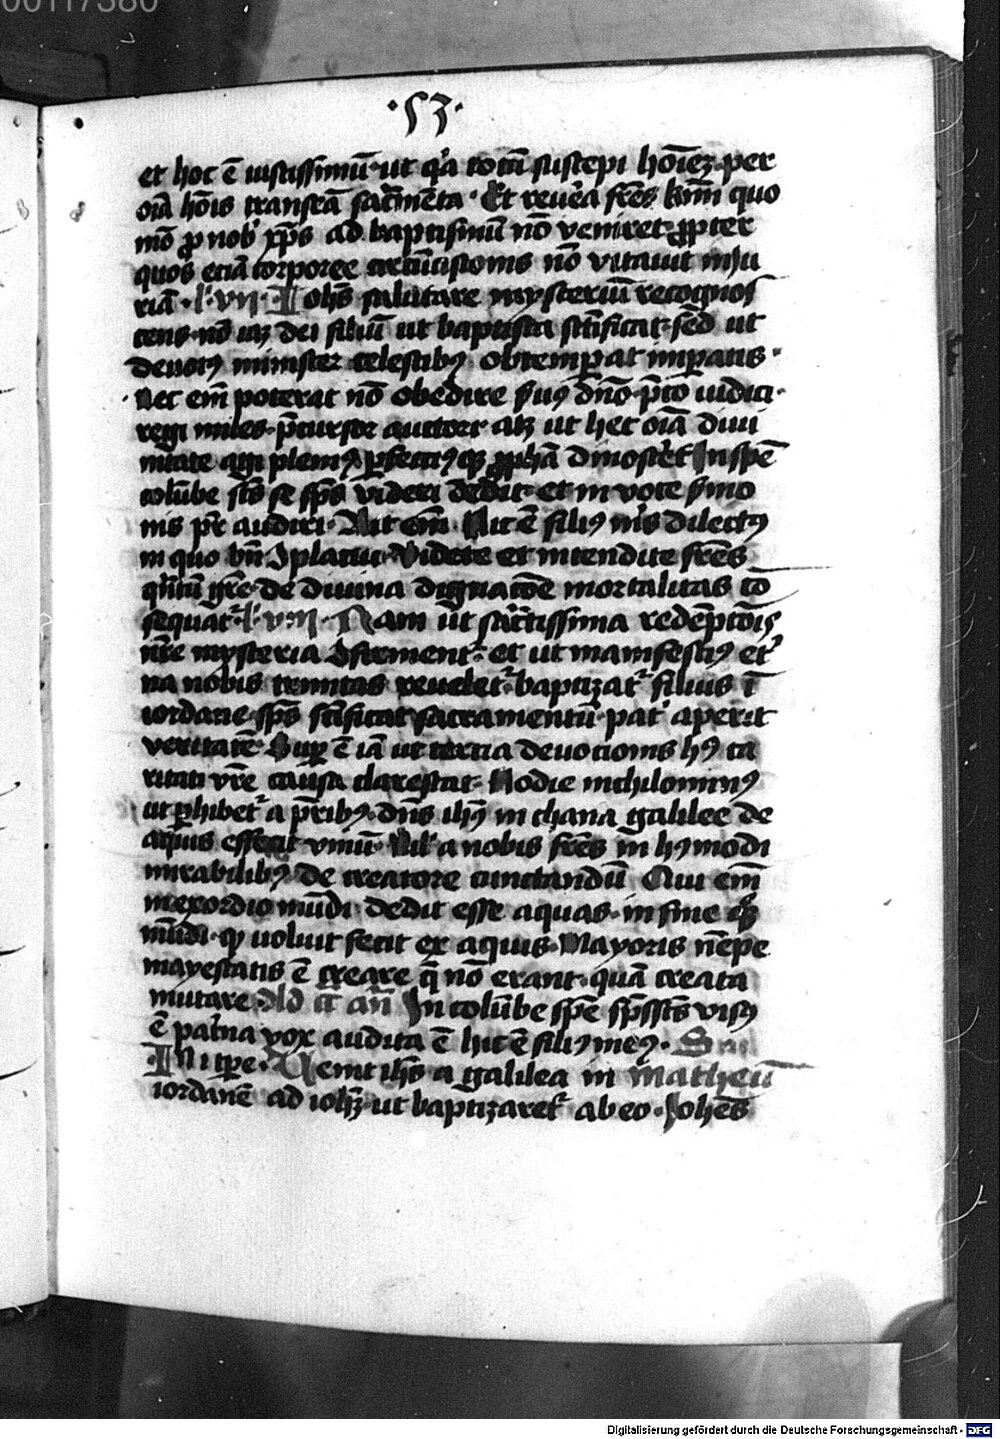 00117380
·53·
et hoc ē iustissimū ut q'a totū suscepi hoīeꝫ per
oīa hoīs transeā sacr̄mēta · Et reuera fr̄es kmī quo
mō ꝓ nob' xp̄s ad baptismū nō veniret ꝓpter
quos etiā corporee circūcisionis nō vitauit iniu
riā · l' vii · Iohēs salutare mysteriū recognos
cens nō iaꝫ dei filiū ut baptista sc̄ificat sed ut
deuotꝰ minister celestibꝫ obtemperat imperatis ·
Nec em̄ poterat nō obedire s'uus dn̄o p̄cto iudici ·
regi miles p̄cursor auctori atꝫ ut hec oīa diui
nitate agi plenīꝰ ꝑfectiꝰqꝫ ꝓphā dmōstret In spē
colūbe sc̄s se sp̄s videri dedit et in voce s'mo
nis pr̄ audiri · Ait em̄ Hic ē filiꝰ m's dilectꝰ
in quo bn̄ 9placui Videte et intendite fr̄es
qn̄tū gr̄e de diuina dignatōe mortalitas cō
sequat' l' viii · Nam ut sacr̄tissima redēptōīs
nr̄e mysteria 9firment' et ut manifestiꝰ et'
na nobis trinitas reuelet' baptizat' filius ī
iordane sp̄s sc̄ificat sacramentū pat' aperit
veritatē Sup ē iā ut tertia deuotionis hꝰ ca
ritati vr̄e causa clarescat Hodie nichilominꝰ
ut ꝑhibet' a p̄ribꝫ dn̄s ihꝰ in chana galilee de
aquis effecit vinū Nil' a nobis fr̄es in hꝰmodi
mirabilibꝫ de creatore cunctandū Qui em̄
in exordio mūdi dedit esse aquas in fine qꝫ
mūdi qn̄ uoluit fecit ex aquis Mayoris nēpe
mayestatis ē creare q̄ nō erant quā creata
mutare Ad cā an̄ In colūbe spē sp̄ssc̄s visꝰ
ē pat'na vox audita ē hic ē filiꝰ meꝰ ·
In i tp̄e · Venit ihēs a galilea in Matheū
iordanē ad iohēꝫ ut baptizaret' ab eo · Iohēs
Digitalisierung gefördert durch die Deutsche Forschungsgemeinschaft - DFG